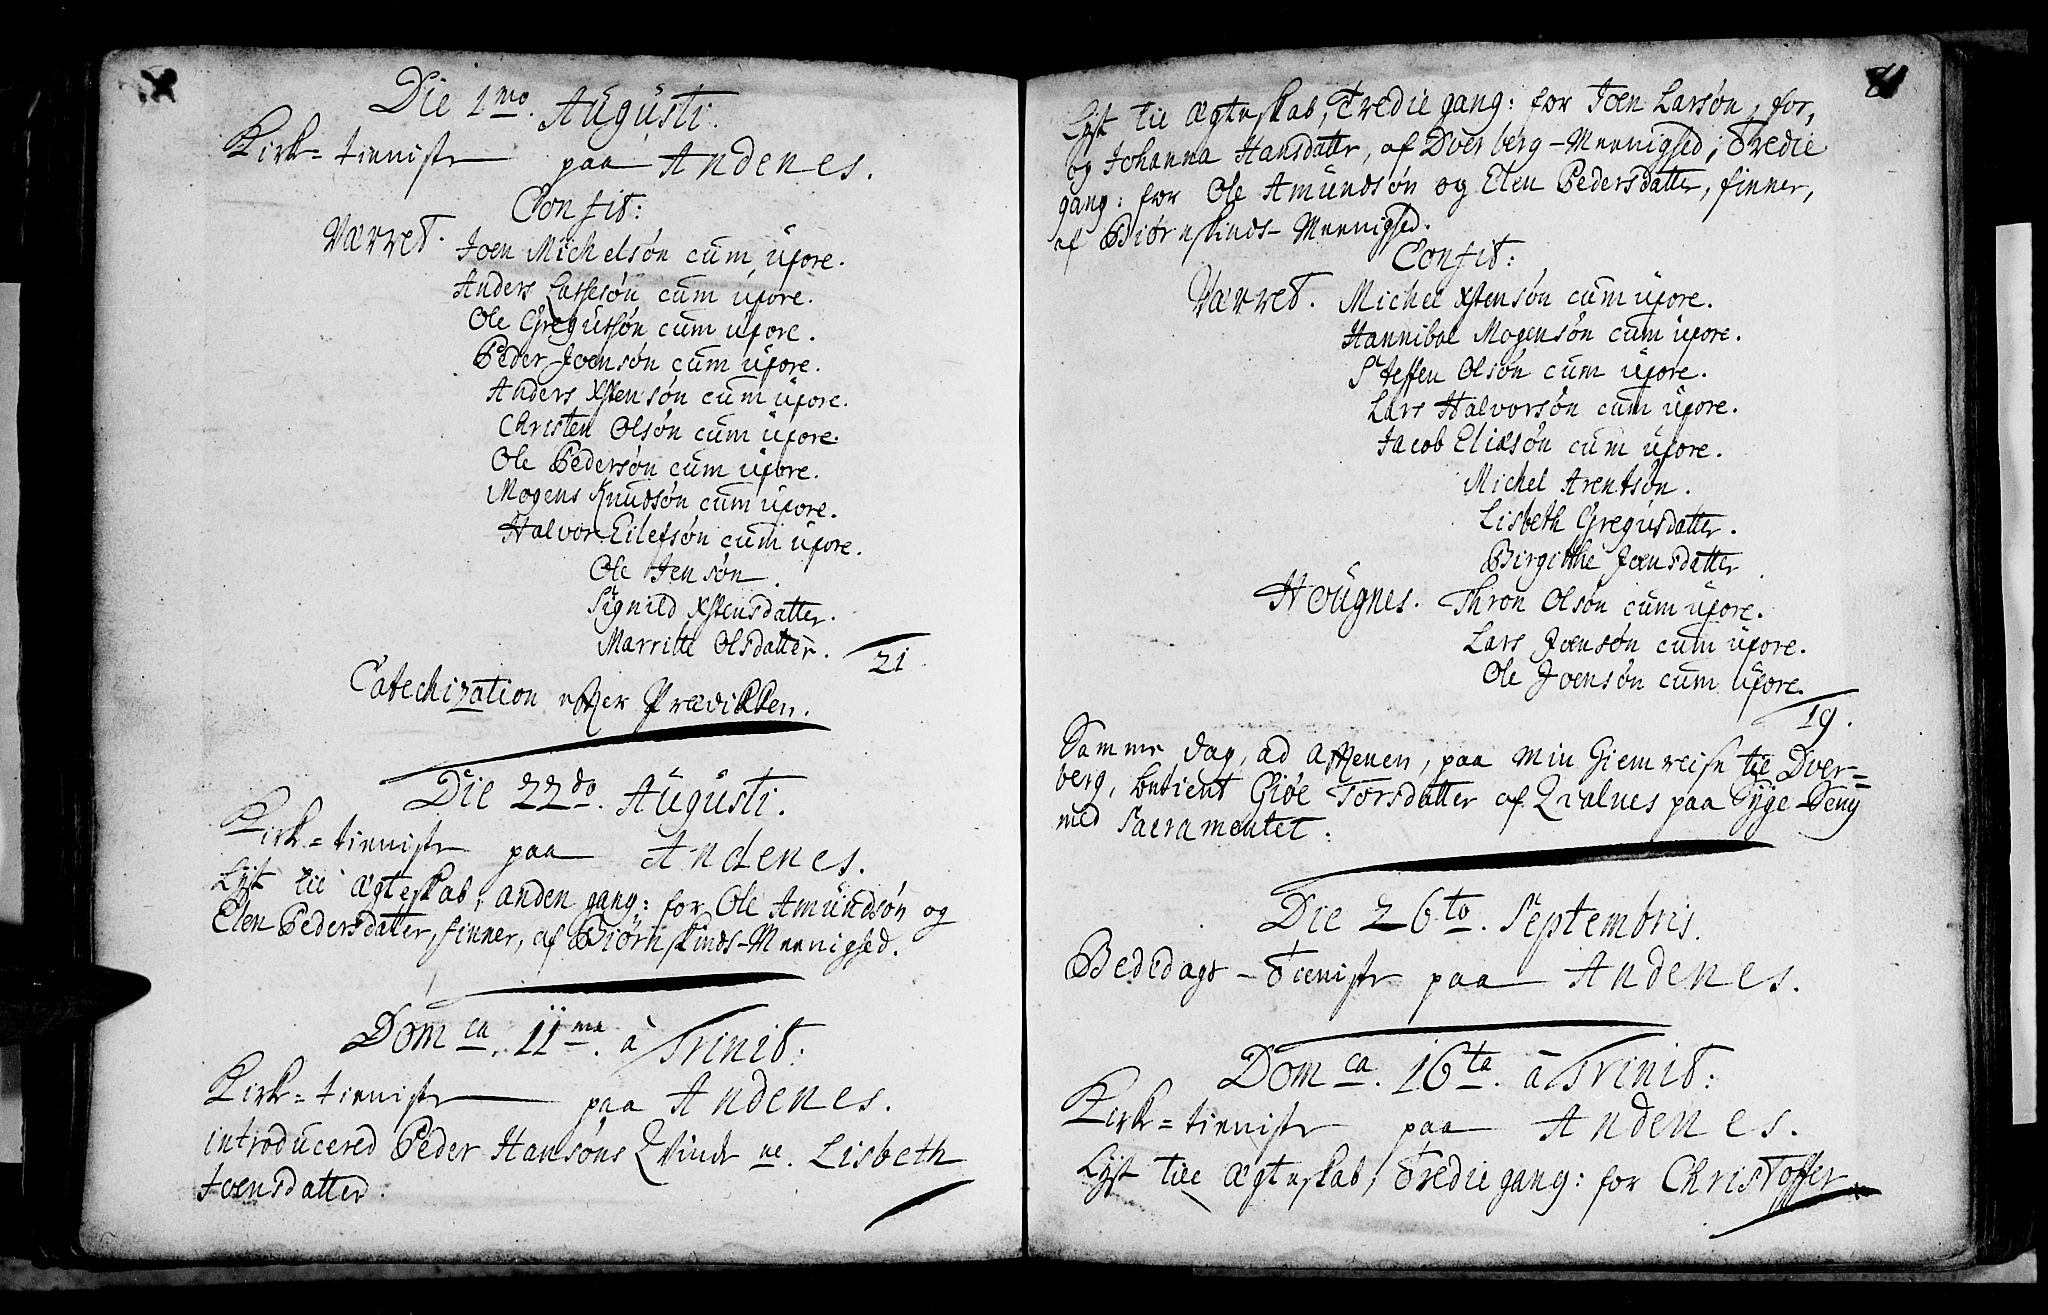 Die 1mo. Augusti.
Kirk=tieniste paa Andenes.
Confit:
Værret. Joen Michelsøn cum uxore.
Anders Lassesøn cum uxore.
Ole Gregussøn cum uxore.
Peder Joensøn cum uxore.
Anders Xstensøn cum uxore.
Christen Olsøn cum uxore.
Ole Pedersøn cum uxore.
Mogens Knudsøn cum uxore.
Halvor Eilefsøn cum uxore.
Ole Jensøn.
Signild Xstensdatter.
Marritte Olsdatter.
21
Catechization efter Prædikken.
Die 22do. Augusti.
Kirk=tieniste paa Andenes.
Lyst til Ægteskab, anden gang: for Ole Amundsøn og
Elen Pedersdatter, finner, af Biørnskinds-Meenighed.
Domca. 11ma. à Trinit:
Kirk=tieniste paa Andenes.
introducered Peder Hansøns Qvinde ne. Lisbeth
Joensdatter.
81
Lyst til Ægteskab, Tredie gang: for Joen Larsøn,
og Johanna Hansdatter, af Dverberg-Meenighed; Tredie
gang: for Ole Amundsøn og Elen Pedersdatter, finner,
af Biørnskinds-Meenighed.
Confit:
Værret. Michel Xstensøn cum uxore.
Hannibal Mogensøn cum uxore.
Steffen Olsøn cum uxore.
Lars Halvorsøn cum uxore.
Jacob Eliæsøn cum uxore.
Michel Arentsøn.
Lisbeth Gregusdatter.
Birgithe Joensdatter.
Hougnes. Thron Olsøn cum uxore.
Lars Joensøn cum uxore.
Ole Joensøn cum uxore.
19.
Samme dag, ad Aftenen, paa min Hiemreise til Dver=
berg, betient Giøe Torsdatter af Qvalnes paa Syge-Seng
med Sacramentet.
Die 26to. Septembris.
Bededags-Tieniste paa Andenes.
Domca. 16ta. à Trinit:
Kirk=tieniste paa Andenes.
Lyst till Ægteskab, Tredie gang: for Christoffer